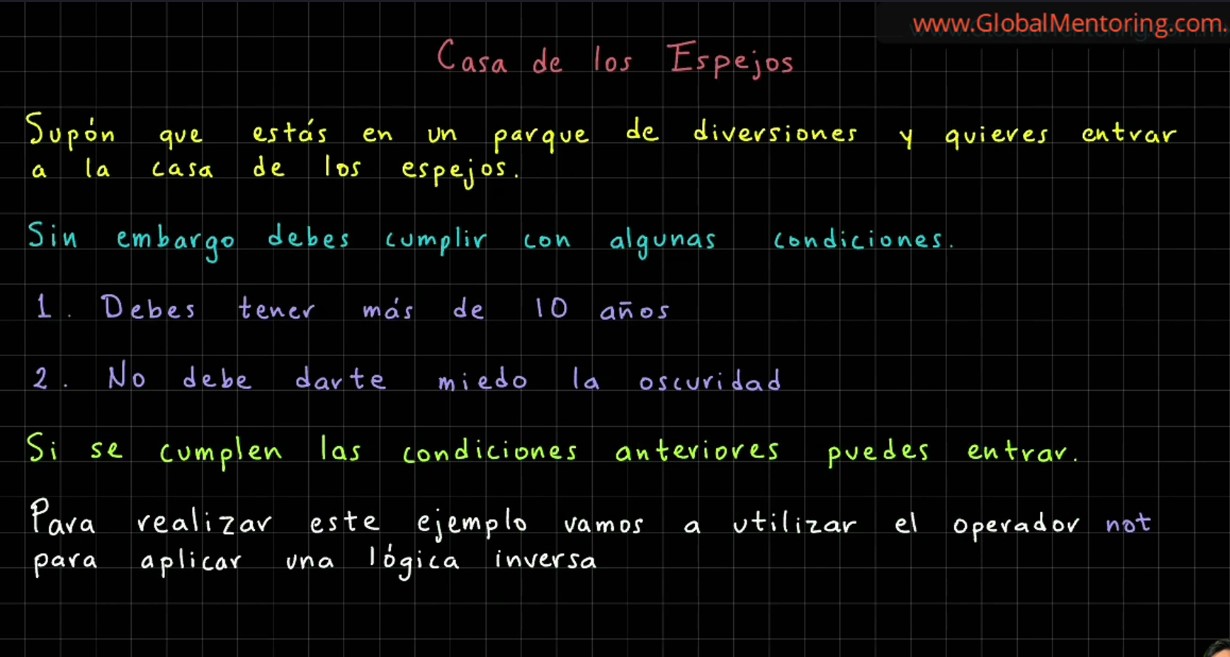 www.GlobalMentoring.com.
Casa de los Espejos
Supón que estás en un parque de diversiones y quieres entrar
a la casa de los espejos.
Sin embargo debes cumplir con algunas condiciones.
1. Debes tener más de 10 años
2. No debe darte miedo la oscuridad
Si se cumplen las condiciones anteriores puedes entrar.
Para realizar este ejemplo vamos a utilizar el operador not
para aplicar una lógica inversa